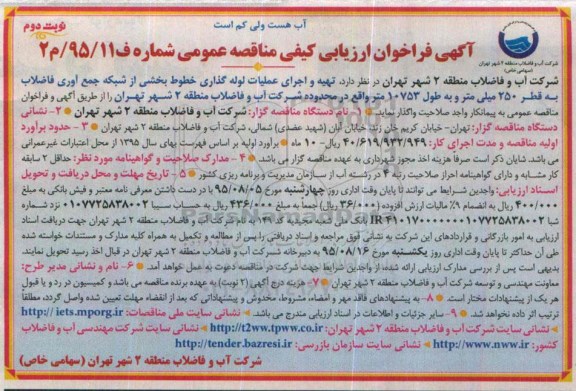 آب هست ولی کم است
نوبت دوم
آگهی فراخوان ارزیابی کیفی مناقصه عمومی شماره ف۹۵/۱۱/م۲
شرکت آب و فاضلاب منطقه ۲ شهر تهران
(سهامی خاص)
شرکت آب و فاضلاب منطقه ۲ شهر تهران در نظر دارد، تهیه و اجرای عملیات لوله گذاری خطوط بخشی از شبکه جمع آوری فاضلاب
به قطر ۲۵۰ میلی متر و به طول ۱۰۷۵۳ متر واقع در محدوده شرکت آب و فاضلاب منطقه ۲ شهر تهران را از طریق آگهی و فراخوان
مناقصه عمومی به پیمانکار واجد صلاحیت واگذار نماید. ۱- نام دستگاه مناقصه گزار: شرکت آب و فاضلاب منطقه ۲ شهر تهران ۲- نشانی
دستگاه مناقصه گزار: تهران- خیابان کریم خان زند- خیابان آبان (شهید عضدی) شمالی، شرکت آب و فاضلاب منطقه ۲ شهر تهران ۳- حدود برآورد
اولیه مناقصه و مدت اجرای کار: ۴۰/۶۱۹/۹۳۲/۹۴۹ ریال- ۱۰ ماه برآورد اولیه بر اساس فهرست بهای سال ۱۳۹۵ از محل اعتبارات غیرعمرانی
می باشد. شایان ذکر است صرفا هزینه اخذ مجوز شهرداری به عهده مناقصه گزار می باشد. ۴- مدارک صلاحیت و گواهینامه مورد نظر: حداقل ۲ سابقه
کار مشابه و دارای گواهینامه احراز صلاحیت رتبه ۴ در رشته آب از سازمان مدیریت و برنامه ریزی کشور ۵- تاریخ مهلت و محل دریافت و تحویل
اسناد ارزیابی: واجدین شرایط می توانند تا پایان وقت اداری روز چهارشنبه مورخ ۹۵/۰۸/۰۵ با در دست داشتن معرفی نامه معتبر و فیش بانکی به مبلغ
۴۰۰/۰۰۰ ریال به انضمام ۹٪ مالیات ارزش افزوده (۳۶/۰۰۰ ریال) جمعاً به مبلغ ۴۳۶/۰۰۰ ریال به حساب سیبا ۰۱۰۷۷۲۵۸۳۸۰۰۲ شماره
شبا IR ۴۱۰۱۷۰۰۰۰۰۰۰۱۰۷۷۲۵۸۳۸۰۰۲ شرکت آب و فاضلاب منطقه ۲ شهر تهران جهت دریافت اسناد
ارزیابی به امور بازرگانی و قراردادهای این شرکت به نشانی فوق مراجعه و اسناد دریافتی را پس از مطالعه و تکمیل به همراه کلیه مدارک و مستندات خواسته شده
طی آن حداکثر تا پایان وقت اداری روز یکشنبه مورخ ۹۵/۰۸/۱۶ به دبیرخانه شرکت آب و فاضلاب منطقه ۲ شهر تهران در قبال اخذ رسید تحویل نمایند.
بدیهی است پس از بررسی مدارک ارزیابی ارائه شده، از واجدین شرایط جهت شرکت در مناقصه دعوت به عمل خواهد آمد. ۶- نام و نشانی مدیر طرح:
معاونت مهندسی و توسعه شرکت آب و فاضلاب منطقه ۲ شهر تهران ۷- هزینه درج آگهی (۲ نوبت) به عهده برنده مناقصه می باشد و کمیسیون در رد و یا قبول
هر یک از پیشنهادات مختار است. ۸- به پیشنهادهای فاقد مهر و امضاء، مشروط، مخدوش و پیشنهاداتی که بعد از انقضاء مهلت تعیین شده واصل گردد، مطلقاً
ترتیب اثر داده نخواهد شد. ۹- سایر جزئیات و اطلاعات در اسناد ارزیابی مندرج می باشد. نشانی سایت ملی مناقصات: http:// iets.mporg.ir
نشانی سایت شرکت آب و فاضلاب منطقه ۲ شهر تهران: http://t2ww.tpww.co.ir نشانی سایت شرکت مهندسی آب و فاضلاب
کشور: http://www.nww.ir نشانی سایت سازمان بازرسی: http://tender.bazresi.ir
شرکت آب و فاضلاب منطقه ۲ شهر تهران (سهامی خاص)